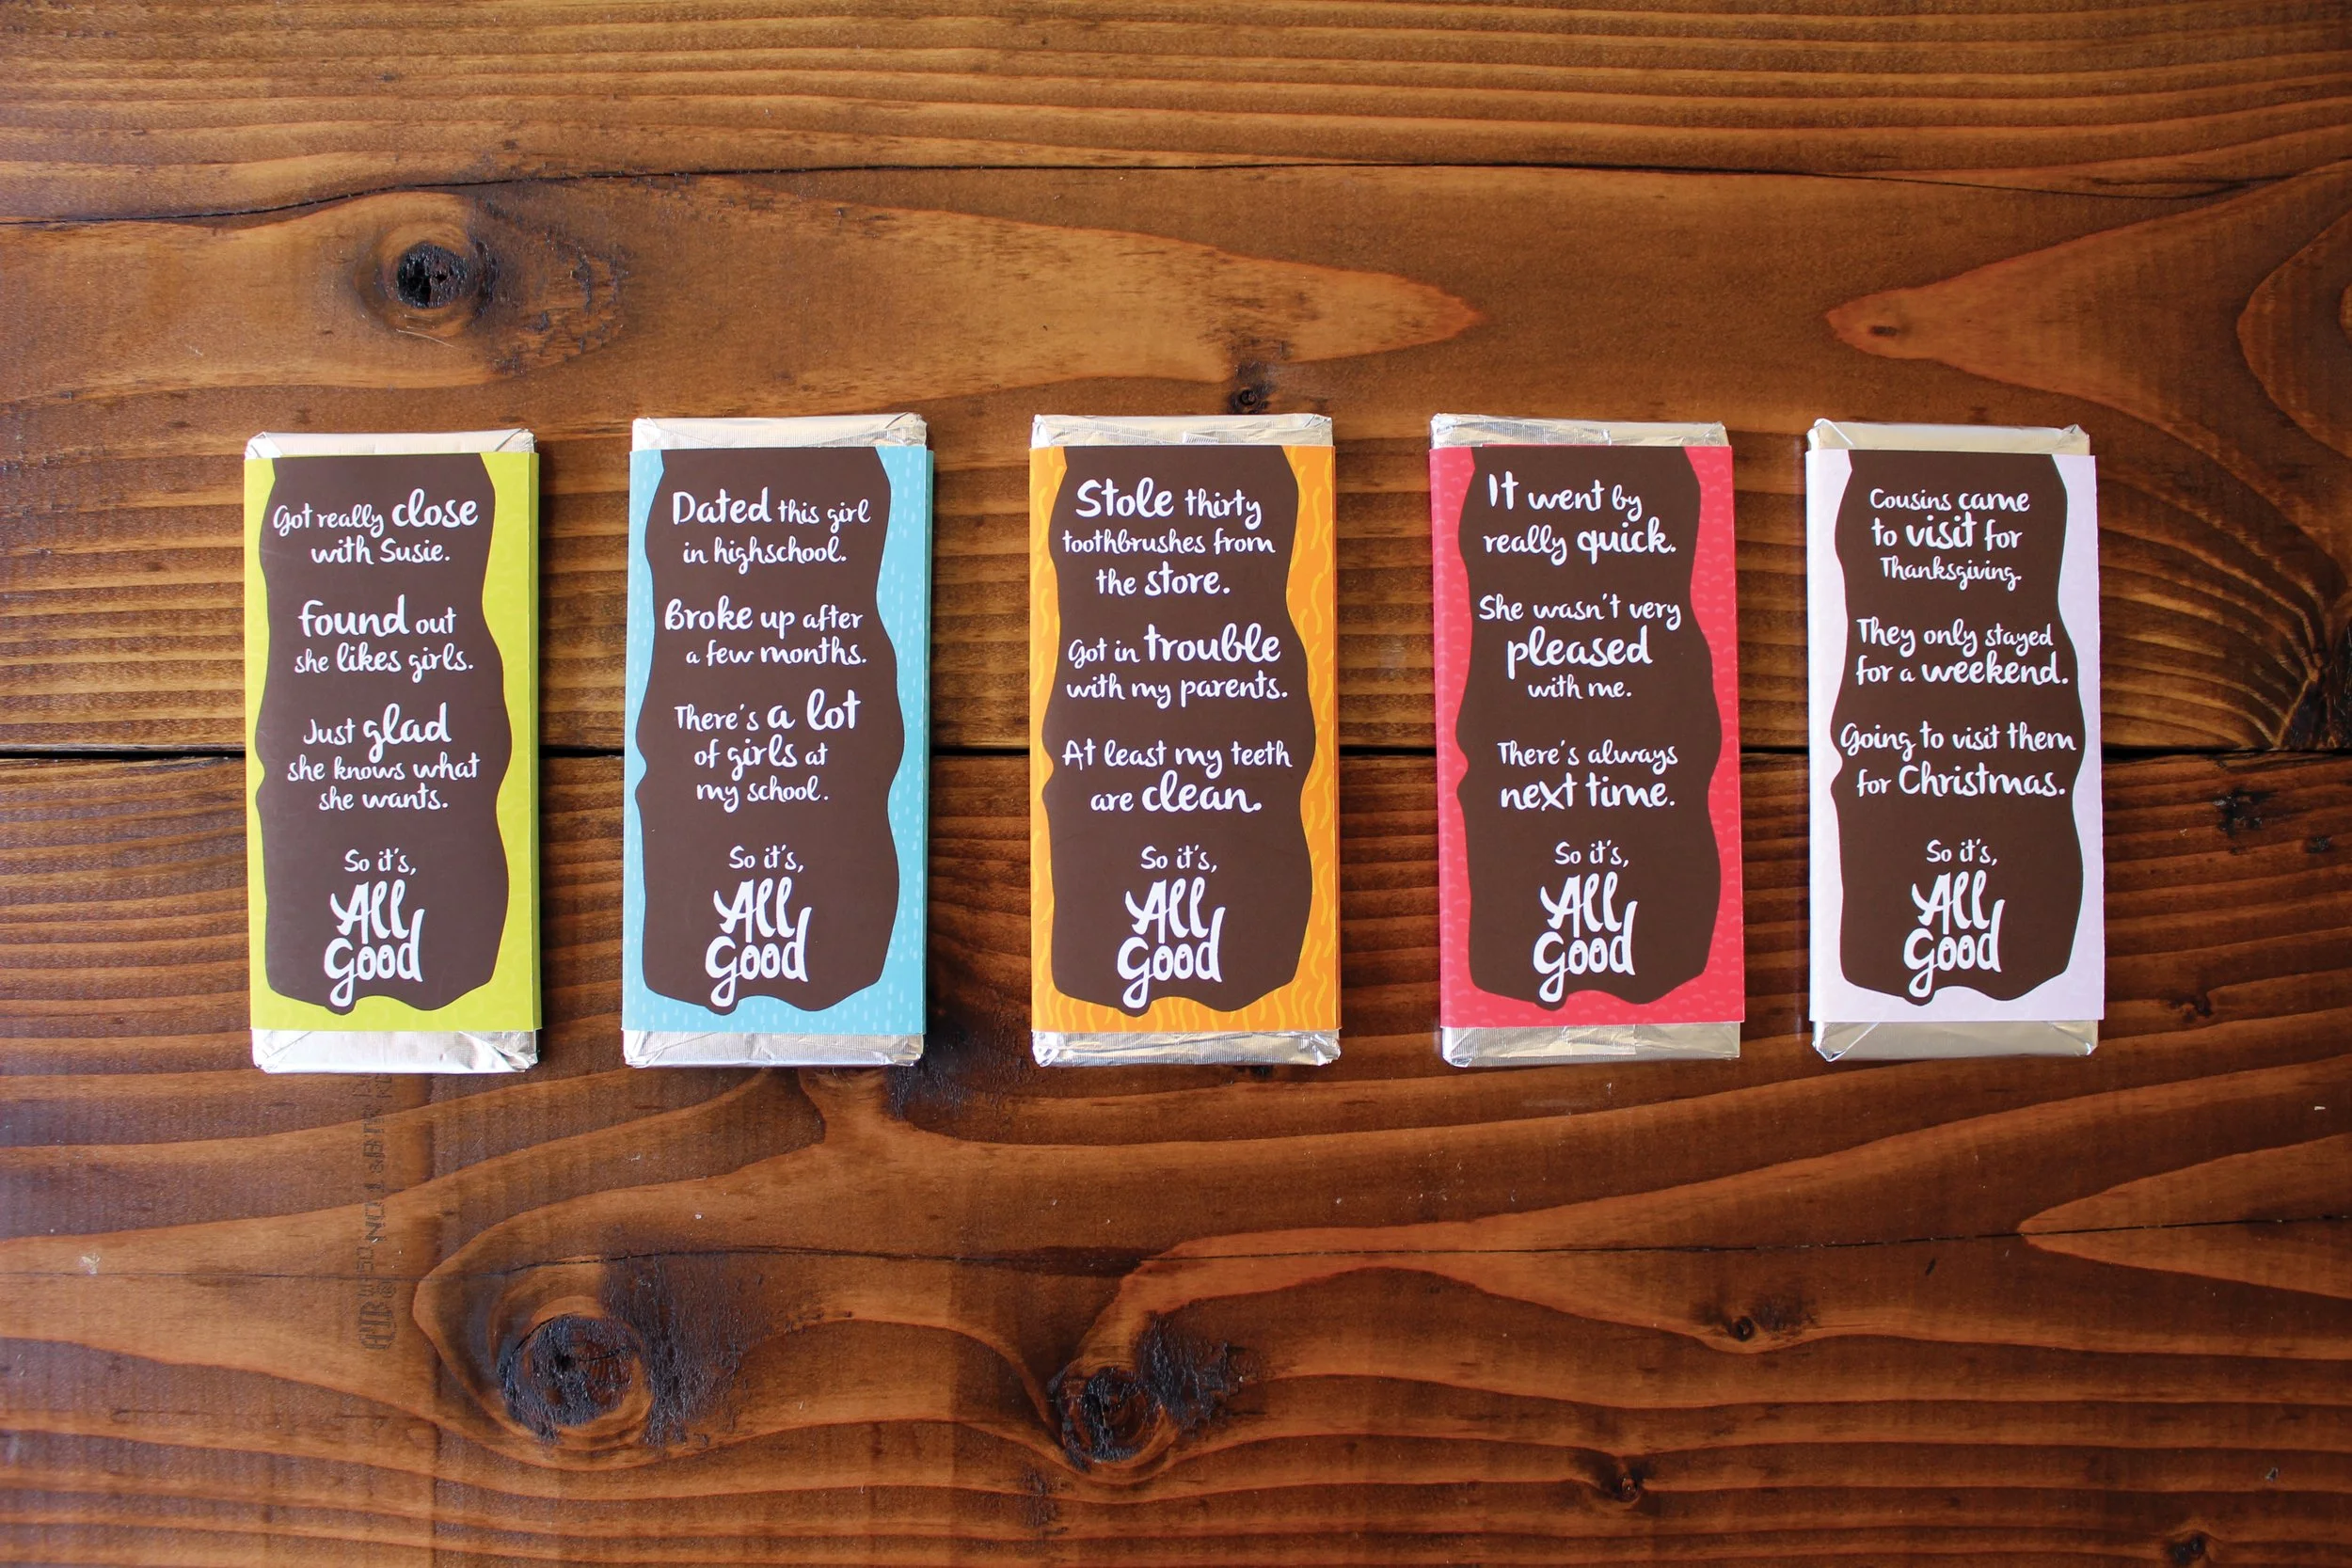 Got really close
with Susie.
found out
she likes girls.
Just glad
she knows what
she wants.
So it's,
All
Good
Dated this girl
in highschool.
Broke up after
a few months.
There's a lot
of girls at
my school.
So it's,
All
Good
Stole thirty
toothbrushes from
the store.
Got in trouble
with my parents.
At least my teeth
are clean.
So it's,
All
Good
It went by
really quick.
She wasn't very
pleased
with me.
There's always
next time.
So it's,
All
Good
Cousins came
to visit for
Thanksgiving.
They only stayed
for a weekend.
Going to visit them
for Christmas.
So it's,
All
Good